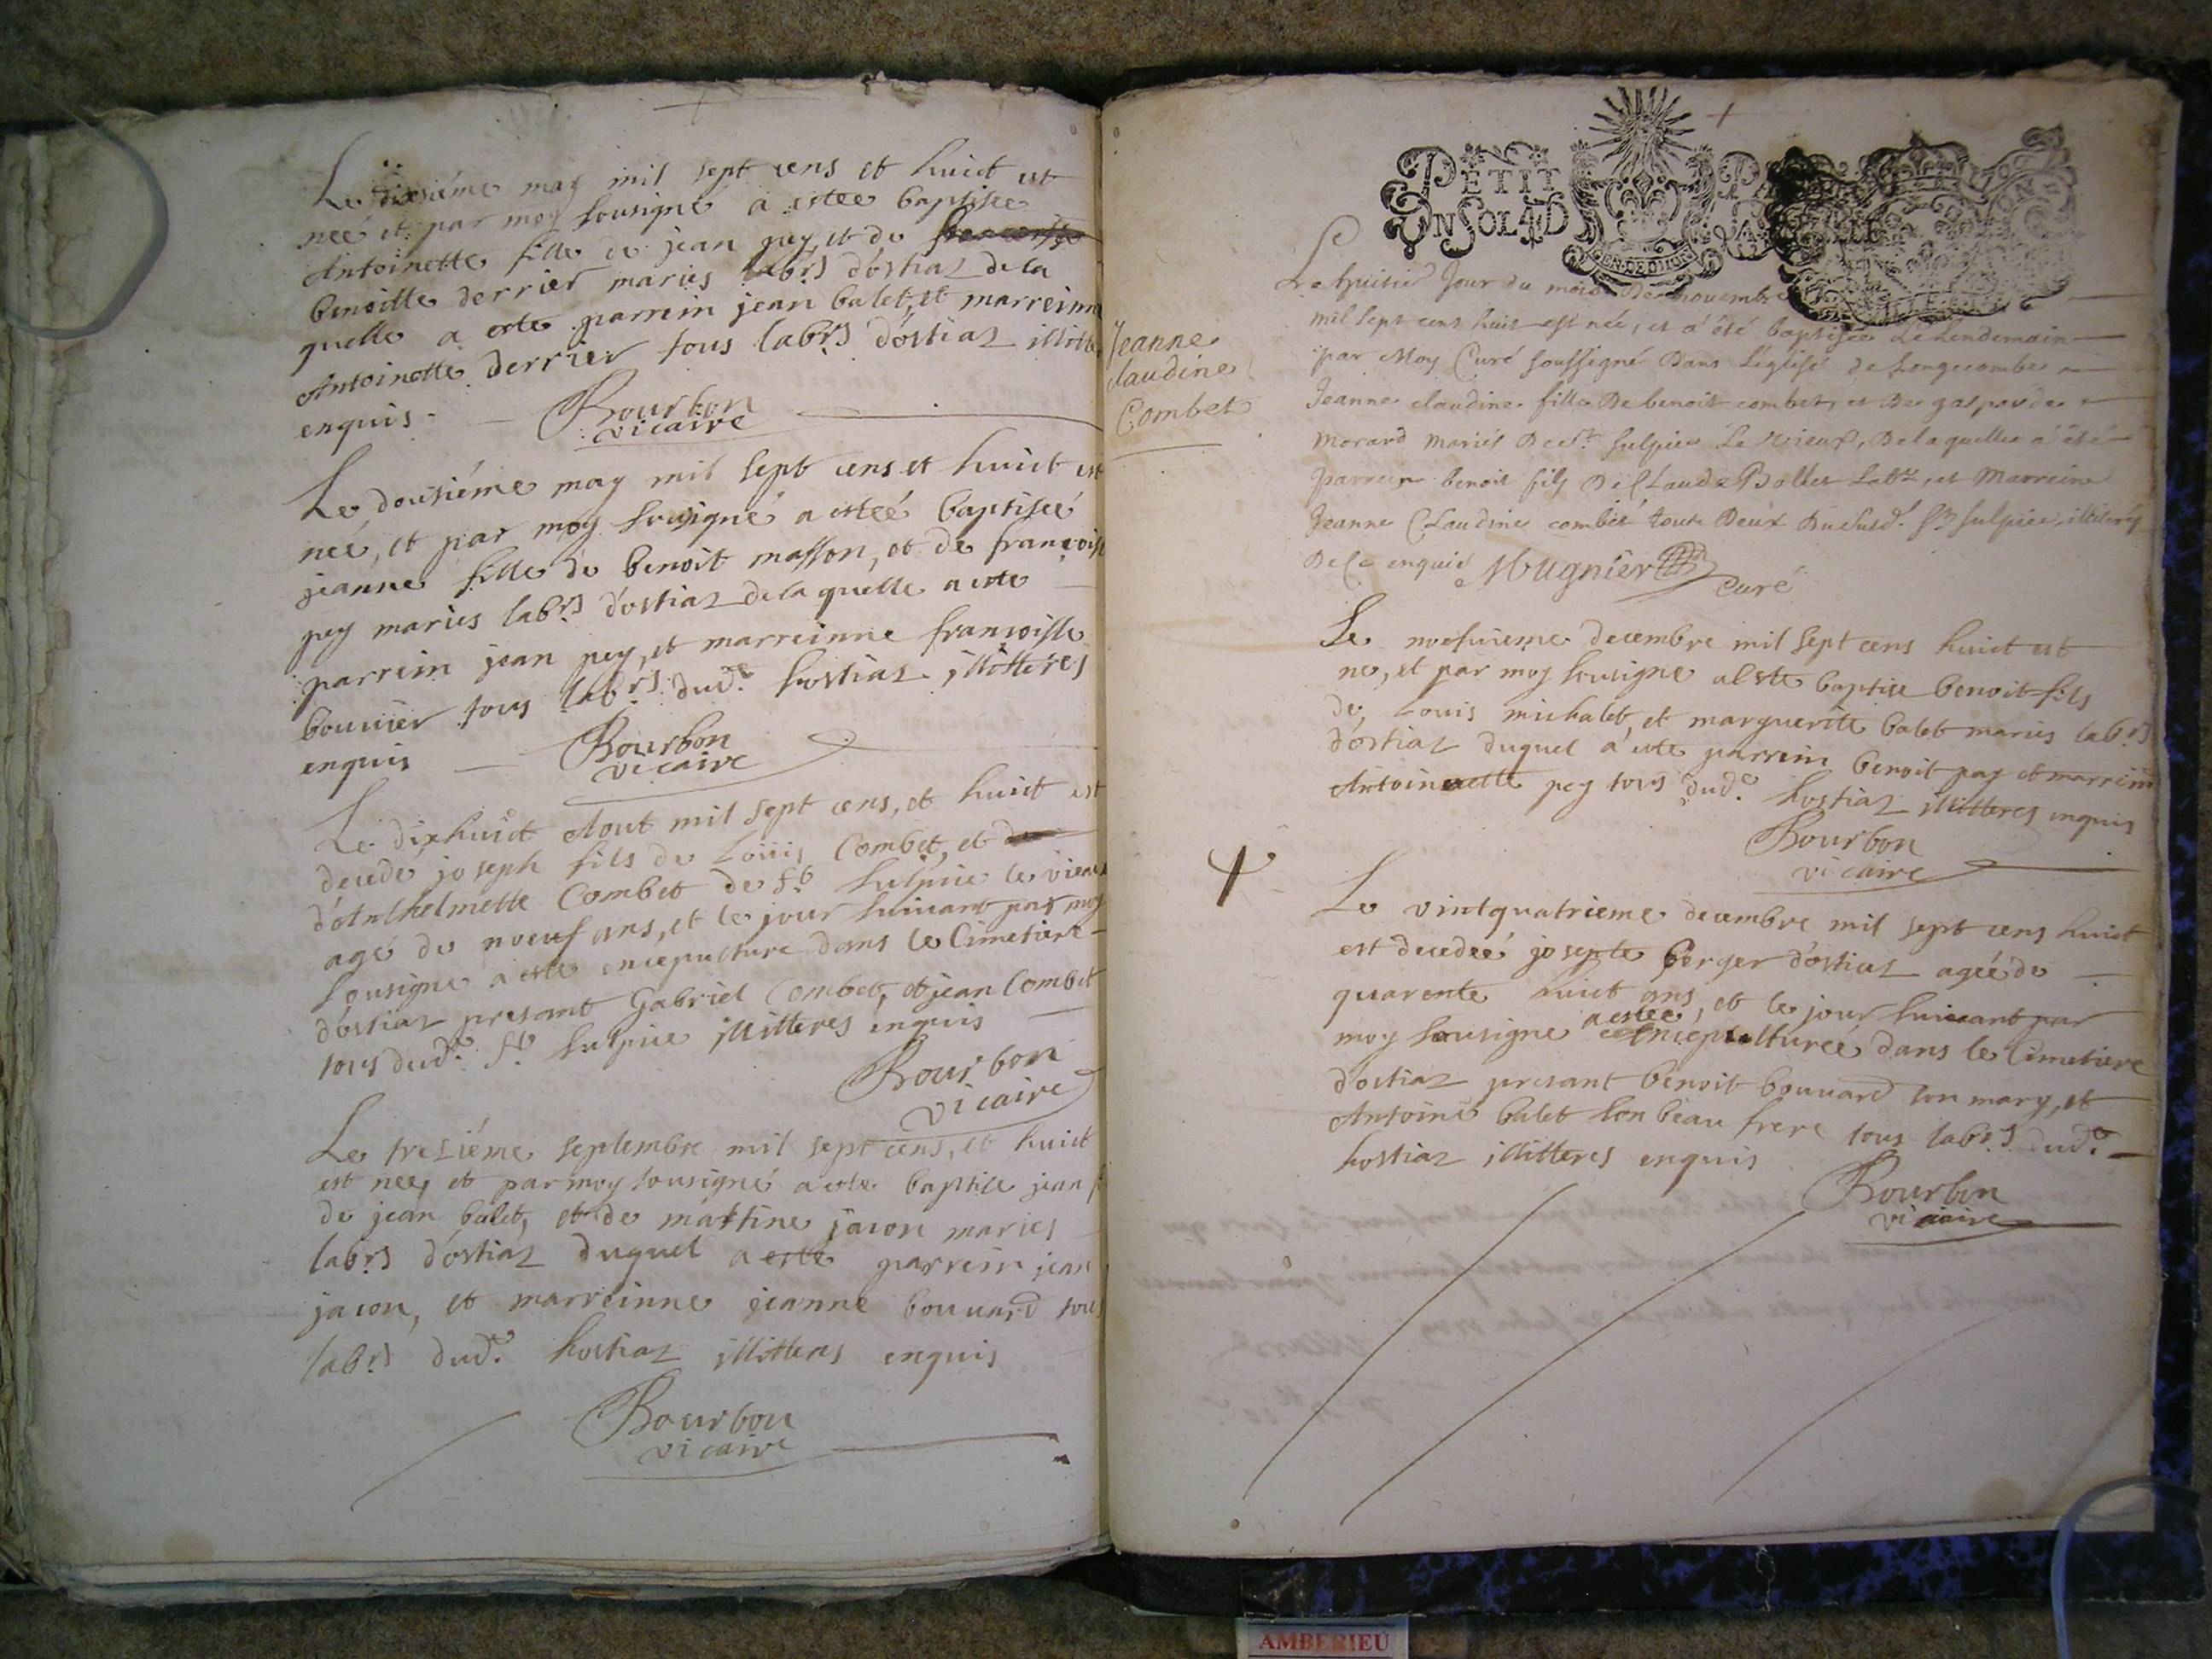 Le dixsiéme may mil sept cens et huict est
neé et par moy sousigné a esteé baptiseé
Antoinette fille de jean pey, et de
benoitte derrier mariés labrs d'ostiaz de la
quelle a este parrein jean balet, et marreinn
Antoinette derrier tous labrs d'ostiaz illitte
enquis
Bourbon
vicaire
Le dousiéme may mil sept cens et huict est
neé, et par moy sousigné a esteé baptiseé
jeanne fille de benoit masson, et de francois
pey mariés labrs d'ostiaz de la quelle a este
parrein jean pey, et marreinne francoisse
bouvier tous labrs dude hostiaz illitteres
enquis
Bourbon
vicaire
Le dixhuict Aout mil sept cens, et huict est
decedé joseph fils de Loüis Combet, et
d'Anthelmette Combet de St sulpice le vieux
agé de noeuf ans, et le jour suivant par moy
sousigne a este encepulture dans le Cimetiere
d'ostiaz presant Gabriel Combet, et jean Combet
tous dude St sulpice illitteres enquis
Bourbon
vicaire
Le tresiéme septembre mil sept cens, et huict
est nee, et par moy sousigné a este baptise jean f
de jean balet, et de martine jacon mariés
labrs d'ostiaz duquel a este parrein jean
jacon, et marreinne jeanne bouvard tous
labrs dude hostiaz illitteres enquis
Bourbon
vicaire
PETIT
UN SOL 4 D
GEN. DE DIJON
Jeanne
claudine
Combet
Le huitié Jour du mois De novembre
mil sept cent huit est née, et a été baptisée Le Lendemain
par Moy Curé soussigné Dans L'eglise de Longecombe
Jeanne claudine fille De benoit combet, et De gasparde
morard mariés De St sulpice Le vieux, De la quelle a été
parrein benoit fils De Claude Ballet Labr, et Marreine
Jeanne Claudine combet toute Deux Dudusd. St sulpice, illiterés
De Ce enquis Mugnier
Curé
Le noefvieme decembre mil sept cens huict est
ne, et par moy sousigne a este baptise benoit fils
de, Louis michalet, et marguerite balet mariés labrs
d'ostiaz duquel a este parrein benoit pay et marrein
Antoinette pey tous dude hostiaz illitteres enquis
Bourbon
vicaire
Le vintquatrieme decembre mil sept cens huict
est decedeé josepte berger d'ostiaz ageé de
quarente huict ans, et le jour suivant par
moy sousigne a esteé encepultureé dans le Cimetiere
d'ostiaz presant benoit bouvard son mary, et
Antoine balet son beau frere tous labrs dude
hostiaz illitteres enquis
Bourbon
vicaire
AMBERIEU